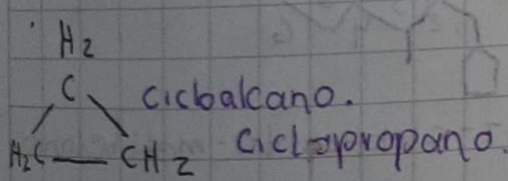 H2
C cicloalcano.
H2C — CH2 Ciclopropano.